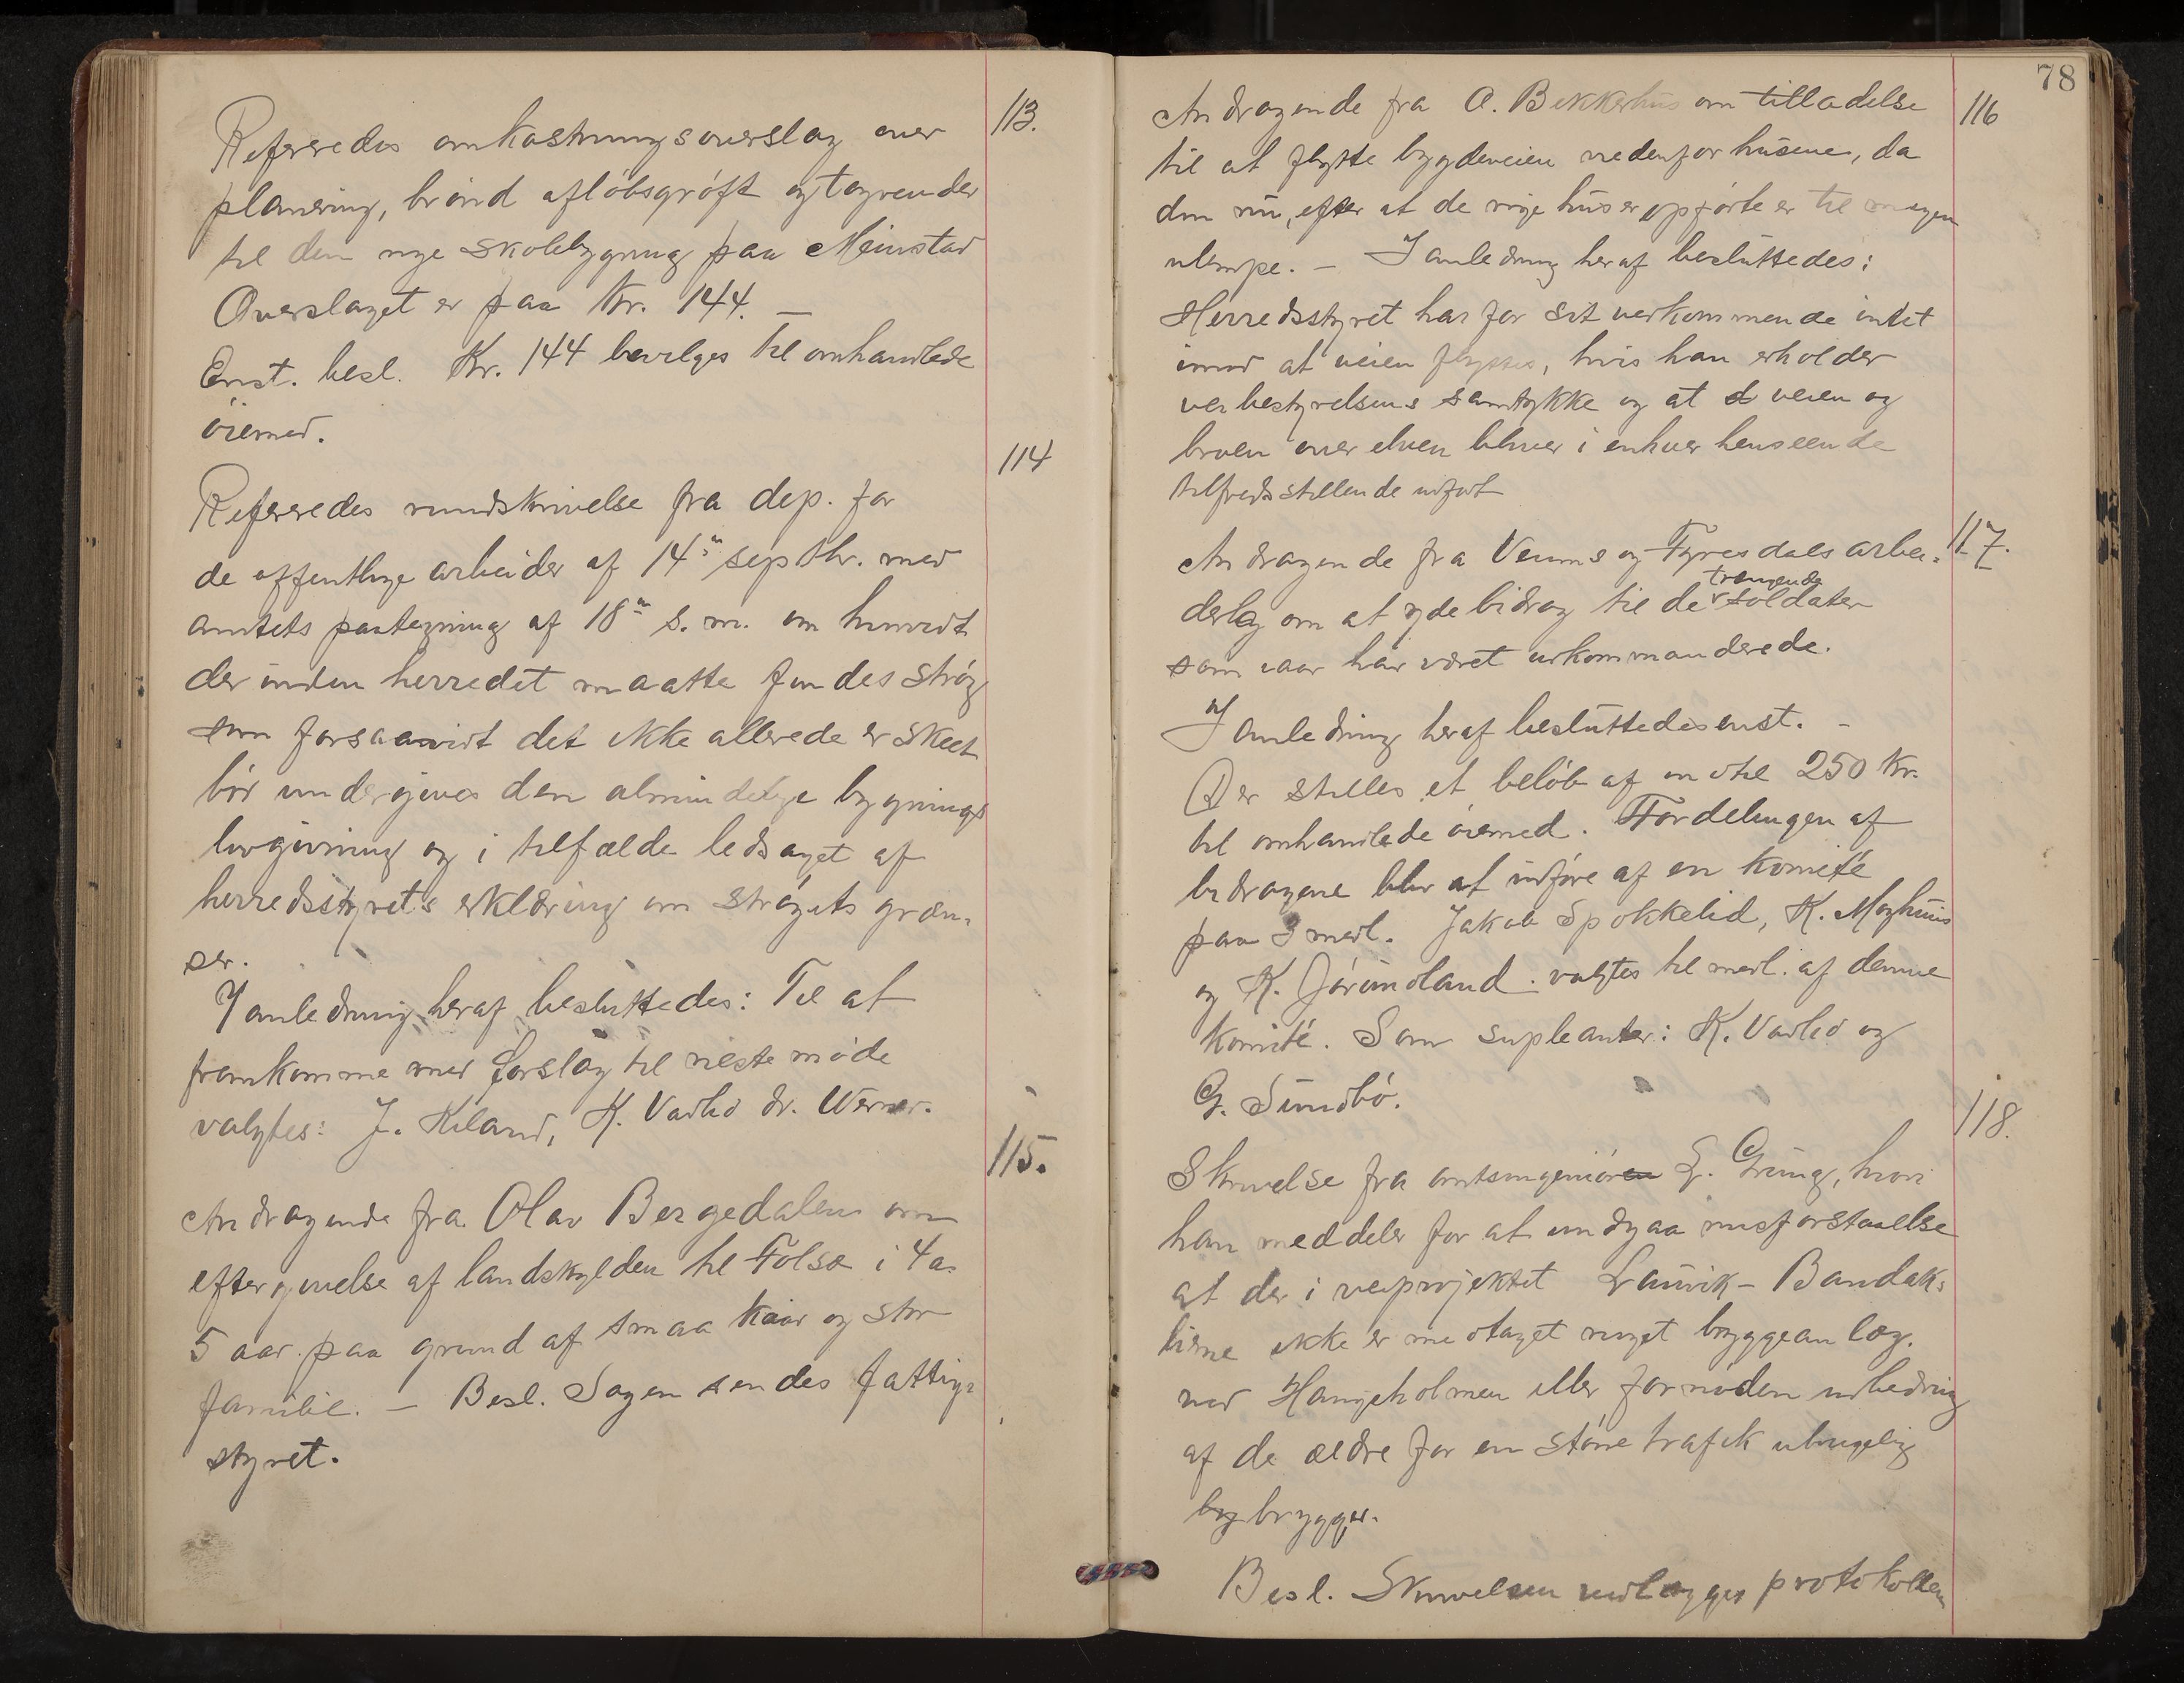 113.
Refereredes omkostningsoverslag over
planering, brönd aflöbsgröft og tagrender
til den nye skolebygning paa Meinstad
Overslaget er paa Kr. 144. —
Enst. besl. Kr. 144 bevilges til omhandlede
öiemed.
114
Refereredes rundskrivelse fra dep. for
de offentlige arbeider af 14n septbr. med
amtets paategning af 18n s. m. om hvorvidt
der inden herredet maatte findes strög
som forsaavidt det ikke allerede er skeet
bör undergives den almindelige bygnings
lovgivning og i tilfælde ledsaget af
herredsstyrets erklæring om strögets græn-
ser.
I anledning heraf besluttedes: Til at
fremkomme med forslag til næste möde
valgtes: J. Kiland, K. Vadhö dr. Werner.
115.
Andragende fra Olav Bergedalen om
eftergivelse af landskylden til Folsæ i 4 a.
5 aar paa grund af smaa kaar og stor
familie. — Besl. Sagen sendes fattig-
styret.
78
116
Andragende fra O. Bekkerhus om tilladelse
til at flytte bygdeveien nedenfor husene, da
den nu, efter at de nye hus er opförte er til megen
ulempe. — I anledning heraf besluttedes:
Herredsstyret har for sit vedkommende intet
imod at veien flyttes, hvis han erholder
veibestyrelsens samtykke og at veien og
broen over elven bliver i enhver henseende
tilfredsstillende udfört
117.
Andragende fra Veums og Fyresdals arbei-
derlag om at yde bidrag til de trængende soldater
som iaar har været udkommanderede.
I anledning heraf besluttedes enst. —
Der stilles et belöb af indtil 250 Kr.
til omhandlede öiemed. Fordelingen af
bidragene blir at udföre af en komité
paa 3 medl. Jakob Spokkelid, K. Moghus
og K. Jörundland valgtes til medl. af denne
komité. Som supleanter: K. Vadhö og
G. Sundbö.
118.
Skrivelse fra amtsingeniören L. Grung, hvori
han meddeler for at undgaa misforstaaelse
at der i veiprojektet Lauvik - Bandaks
linie ikke er medtaget noget bryggeanlæg
ved Hangeholmen eller fornöden udbedring
af de ældre for en större trafik ubrugelig
bry brygger.
Besl. Skrivelsen vedlægges protokollen